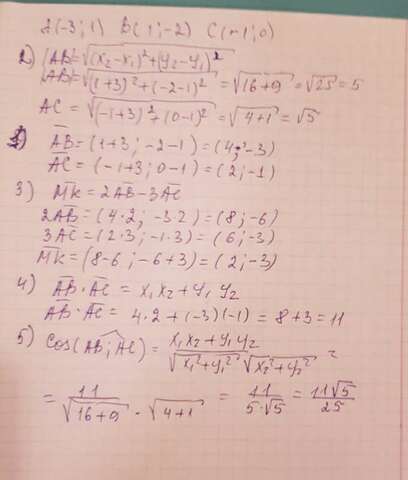 A(-3;1) B(1;-2) C(-1;0)
2) |AB|=√(x₂-x₁)²+(y₂-y₁)²
|AB|=√(1+3)²+(-2-1)² = √16+9 = √25 = 5
AC = √(-1+3)²+(0-1)² = √4+1 = √5
1) AB=(1+3; -2-1)=(4;-3)
AC=(-1+3; 0-1)=(2;-1)
3) MK = 2AB-3AC
2AB=(4·2; -3·2)=(8;-6)
3AC=(2·3; -1·3)=(6;-3)
MK=(8-6; -6+3)=(2;-3)
4) AB·AC = x₁x₂+y₁y₂
AB·AC = 4·2+(-3)(-1)=8+3=11
5) cos(AB;AC) = x₁x₂+y₁y₂ / √x₁²+y₁² √x₂²+y₂² =
= 11 / √16+9 · √4+1 = 11 / 5·√5 = 11√5 / 25